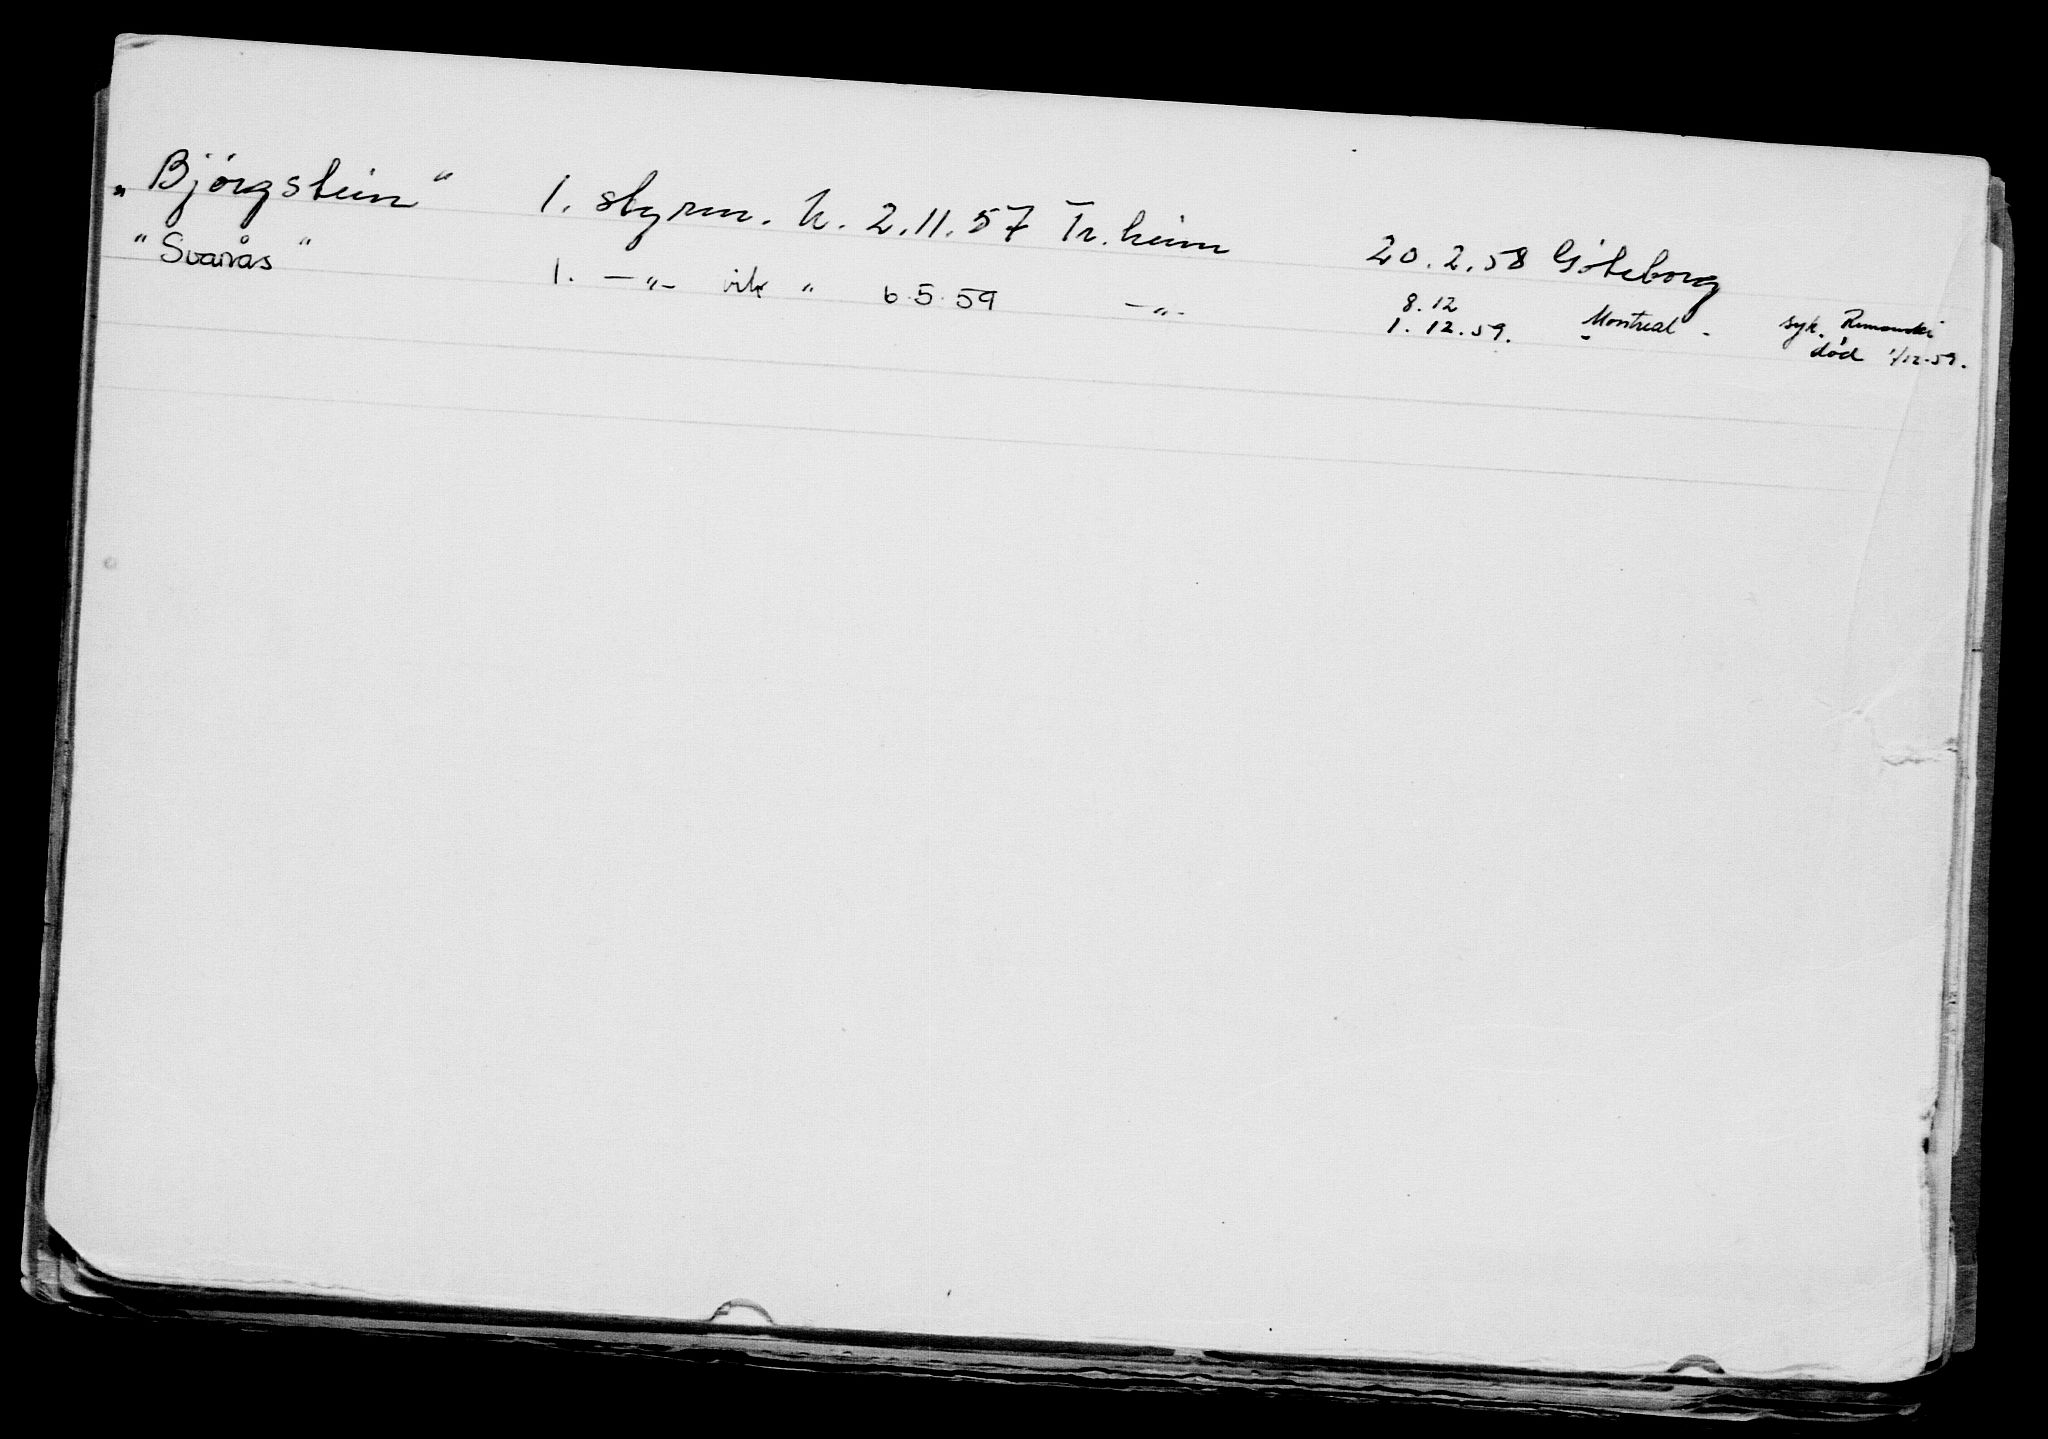 „Bjørgstein“ 1. styrm. h. 2.11.57 Tr.heim 20.2.58 Göteborg
"Svanås" 1. —„— vik " 6.5.59 —„— 8.12 Montreal - syk.
1.12.59. død 1/12-59.